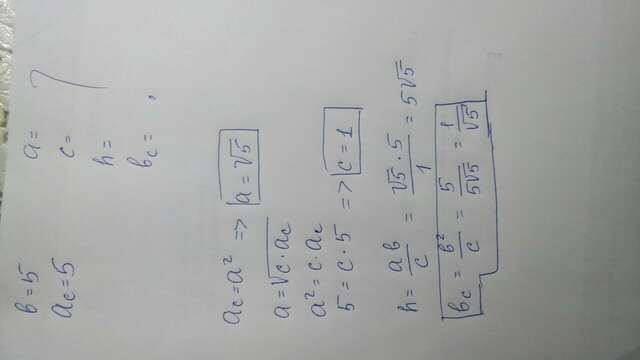 b=5 a= ?
a_c=5 c=
h=
b_c= ,
a_c=a² => a=√5
a=√c·a_c
a²=c·a_c
5=c·5 => c=1
h= ab/c = √5·5/1 =5√5
b_c= b²/c = 5/5√5 = 1/√5